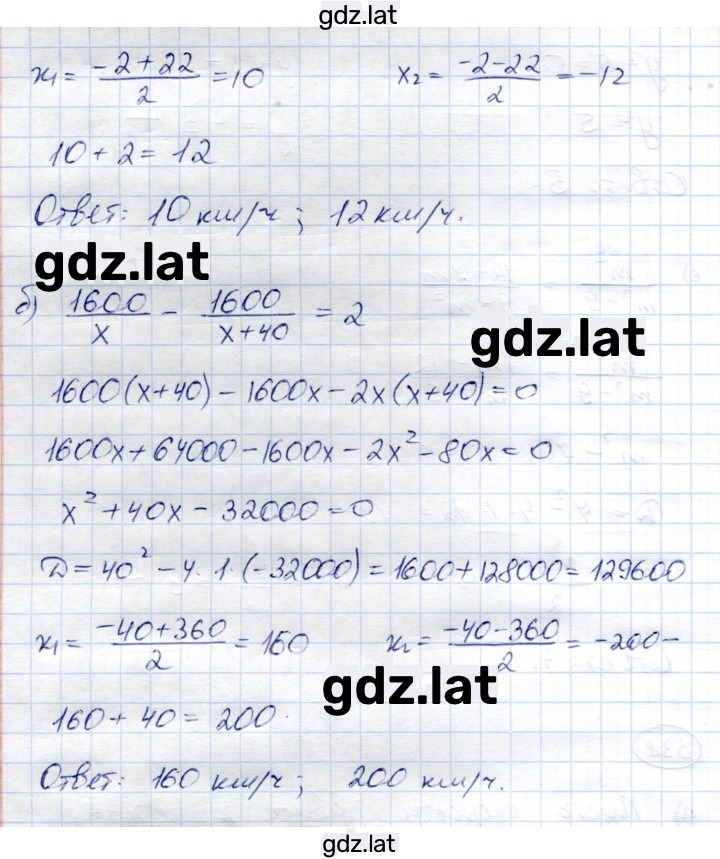 gdz.lat
x₁ = (-2+22)/2 = 10    x₂ = (-2-22)/2 = -12
10 + 2 = 12
Ответ: 10 км/ч; 12 км/ч.
gdz.lat
б) 1600/x - 1600/(x+40) = 2
gdz.lat
1600(x+40) - 1600x - 2x(x+40) = 0
1600x + 64000 - 1600x - 2x² - 80x = 0
x² + 40x - 32000 = 0
D = 40² - 4·1·(-32000) = 1600 + 128000 = 129600
x₁ = (-40+360)/2 = 160    x₂ = (-40-360)/2 = -200 -
gdz.lat
160 + 40 = 200.
Ответ: 160 км/ч; 200 км/ч.
gdz.lat